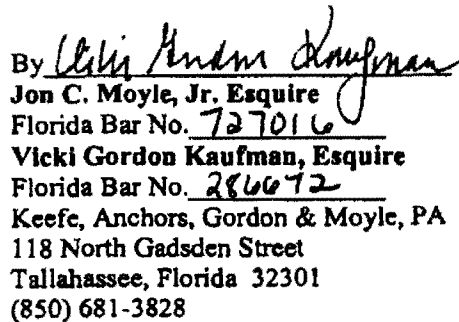 By Vicki Gordon Kaufman
Jon C. Moyle, Jr. Esquire
Florida Bar No. 727016
Vicki Gordon Kaufman, Esquire
Florida Bar No. 286672
Keefe, Anchors, Gordon & Moyle, PA
118 North Gadsden Street
Tallahassee, Florida 32301
(850) 681-3828